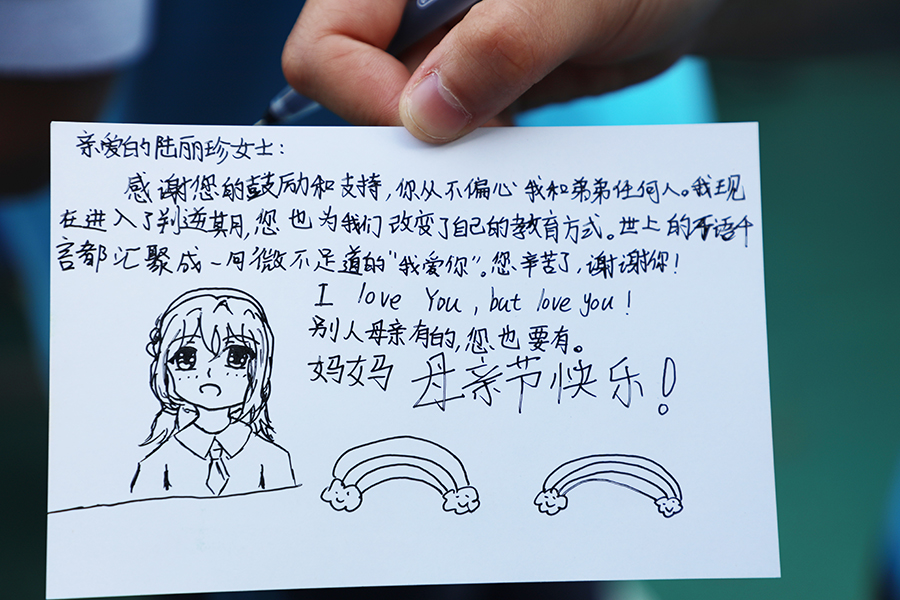 亲爱的陆丽珍女士：
感谢您的鼓励和支持，你从不偏心我和弟弟任何人。我现
在进入了判逆其月，您也为我们改变了自己的教育方式。世上的万语千
言都汇聚成一句微不足道的“我爱你”。您辛苦了，谢谢你！
I love You, but love you!
别人母亲有的，您也要有。
妈妈 母亲节快乐！